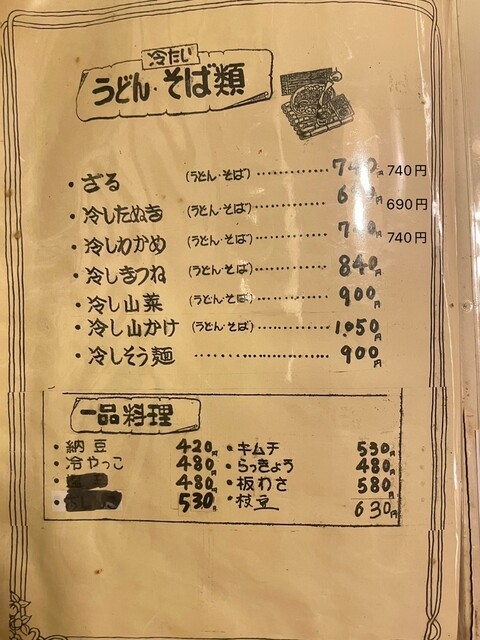 冷たい
うどん・そば類
・ざる (うどん・そば) 740円 740円
・冷したぬき (うどん・そば) 690 690円
・冷しわかめ (うどん・そば) 740 740円
・冷しきつね (うどん・そば) 840円
・冷し山菜 (うどん・そば) 900円
・冷し山かけ (うどん・そば) 1,050円
・冷しそう麺 900円
一品料理
・納豆 420円 ・キムチ 530円
・冷やっこ 480円 ・らっきょう 480円
・ 480円 ・板わさ 580円
・ 530円 ・枝豆 630円